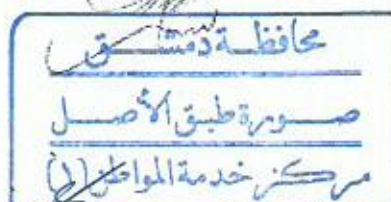 محافظة دمشق
صورة طبق الأصل
مركز خدمة المواطن (١)